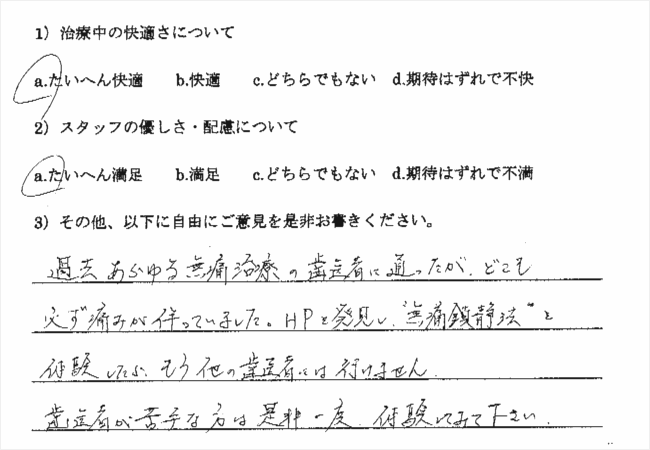 1）治療中の快適さについて
a.たいへん快適 b.快適 c.どちらでもない d.期待はずれで不快
2）スタッフの優しさ・配慮について
a.たいへん満足 b.満足 c.どちらでもない d.期待はずれで不満
3）その他、以下に自由にご意見を是非お書きください。
過去あらゆる無痛治療の歯医者に通ったが、どこも
必ず痛みが伴っていました。HPを発見し、"無痛鎮静法"を
体験したら、もう他の歯医者には行けません。
歯医者が苦手な方は是非一度、体験してみて下さい。